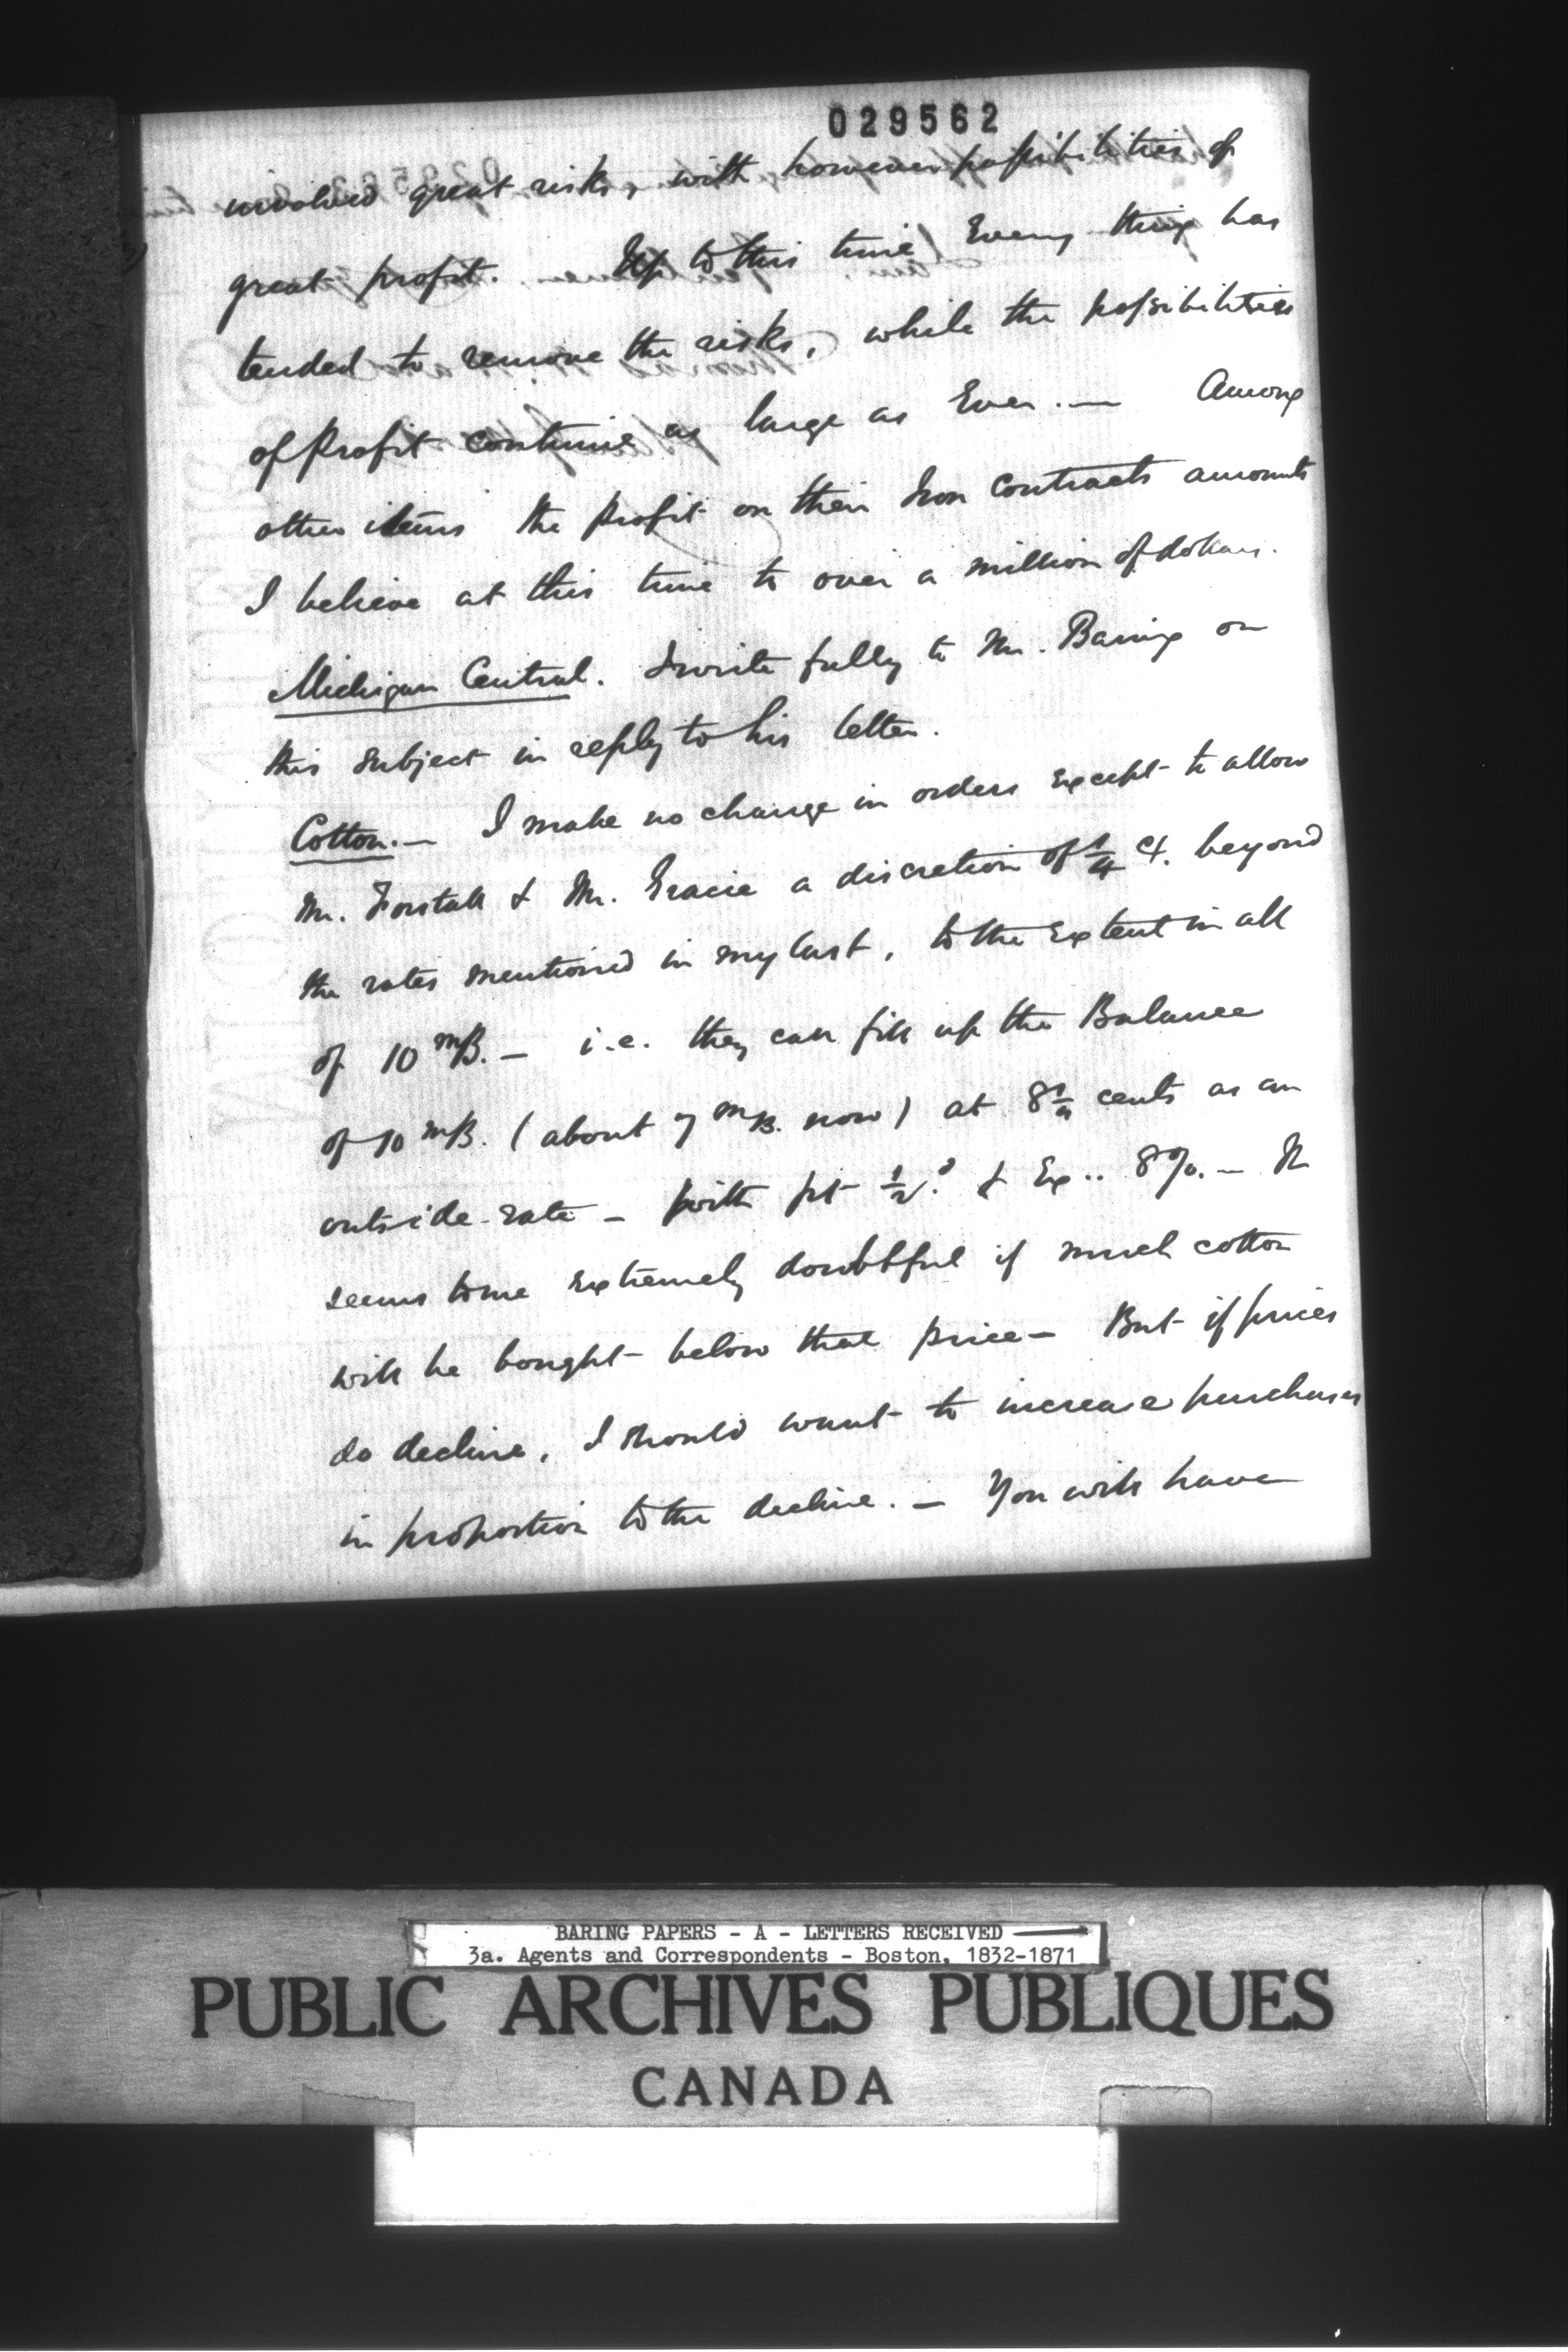 029562
involved great risks, with however possibilities of
great profit. Up to this time Every thing has
tended to remove the risks, while the possibilities
of profit continue as large as Ever. — Among
other items the profit on their Iron contracts amounts
I believe at this time to over a million of dollars.
Michigan Central. I write fully to Mr. Baring on
this subject in reply to his letter.
Cotton. — I make no change in orders except to allow
Mr. Forstall & Mr. Gracie a discretion of 1/4 ct. beyond
the rates mentioned in my last, to the Extent in all
of 10 mB. — i.e. they can fill up the Balance
of 10 mB. (about 7 mB. now) at 8 1/4 cents as an
outside rate — with frt 1/2. & Ex.. 8%. — It
seems to me extremely doubtful if much cotton
will be bought below that price — But if prices
do decline, I should want to increase purchases
in proportion to the decline. — You will have
BARING PAPERS - A - LETTERS RECEIVED
3a. Agents and Correspondents - Boston, 1832-1871
PUBLIC ARCHIVES PUBLIQUES
CANADA